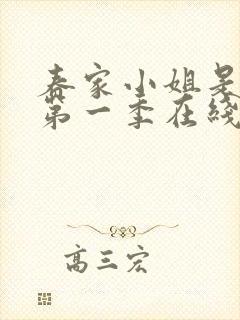 春家小姐是
第一季在线
高三宏